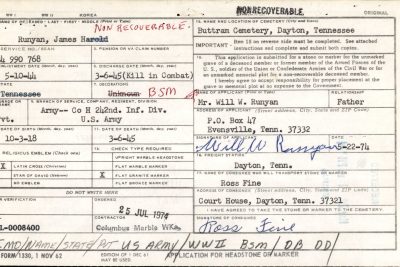 WW II KOREA NONRECOVERABLE ORIGINAL
NAME OF DECEASED - LAST - FIRST - MIDDLE (Print or Type)
NON RECOVERABLE.
Runyan, James Harold
14. NAME AND LOCATION OF CEMETERY (City and State)
Buttram Cemetery, Dayton, Tennessee
PENSION OR VA CLAIM NUMBER
IMPORTANT
Item 18 on reverse side must be completed. See attached
instructions and complete and submit both copies.
4 990 768
5-10-44
3-6-45(Kill in Combat)
This application is submitted for a stone or marker for the unmarked
grave of a deceased member or former member of the Armed Forces of the
U.S., soldier of the Union or Confederate Armies of the Civil War or for
an unmarked memorial plot for a non-recovered deceased member.
I hereby agree to accept responsibility for proper placement at the
grave or memorial plot at no expense to the Government.
STATE
Tennessee
Unknown BSM
Mr. Will W. Runyan Father
BRANCH OF SERVICE, COMPANY, REGIMENT, DIVISION
Army-- Co H 242nd. Inf. Div.
vt. U.S. Army
P.O. Box 47
Evensville, Tenn. 37332
10-3-18
3-6-45
Will W Runyan 5-22-74
RELIGIOUS EMBLEM (Check one)
CHECK TYPE REQUIRED
UPRIGHT MARBLE HEADSTONE
X LATIN CROSS (Christian)
FLAT MARBLE MARKER
STAR OF DAVID (Hebrew)
X FLAT GRANITE MARKER
NO EMBLEM
FLAT BRONZE MARKER
FREIGHT STATION
Dayton, Tenn.
NAME OF CONSIGNEE WHO WILL TRANSPORT STONE OR MARKER
Ross Fine
DO NOT WRITE HERE
Court House, Dayton, Tenn. 37321
I HAVE AGREED TO TAKE THE STONE OR MARKER TO THE CEMETERY
ORDERED
25 JUL 1974
L-0008400
Columbus Marble Wks.
SIGNATURE OF CONSIGNEE
Ross Fine
US ARMY/WWII BSM/DB DD/
FORM 1330, 1 NOV 62
EDITION OF 1 DEC 61
MAY BE USED
APPLICATION FOR HEADSTONE OR MARKER